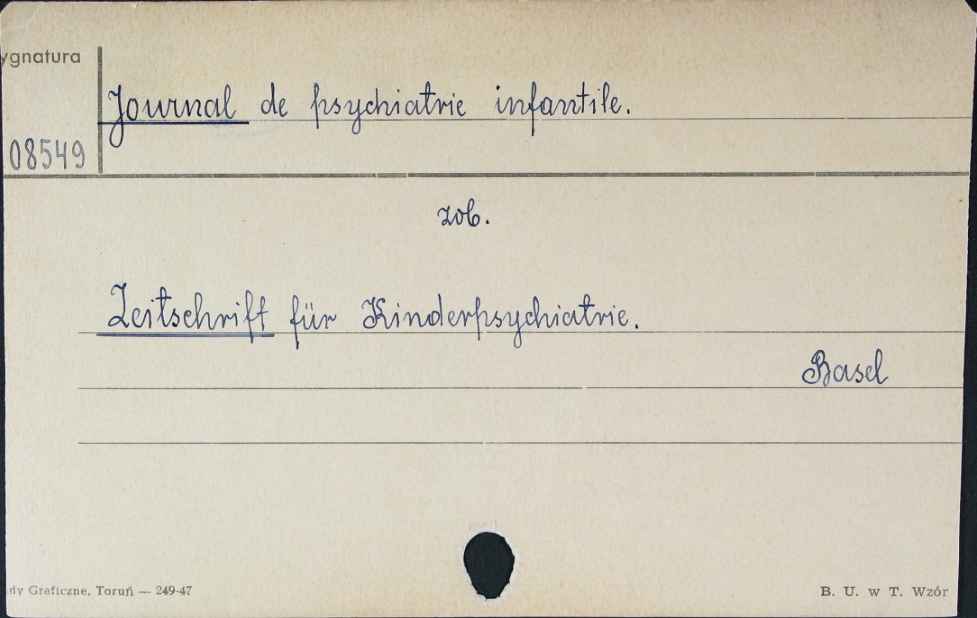 ygnatura
Journal de psychiatrie infantile.
08549
zob.
Zeitschrift für Kinderpsychiatrie.
Basel
dy Graficzne, Toruń — 249-47
B. U. w T. Wzór